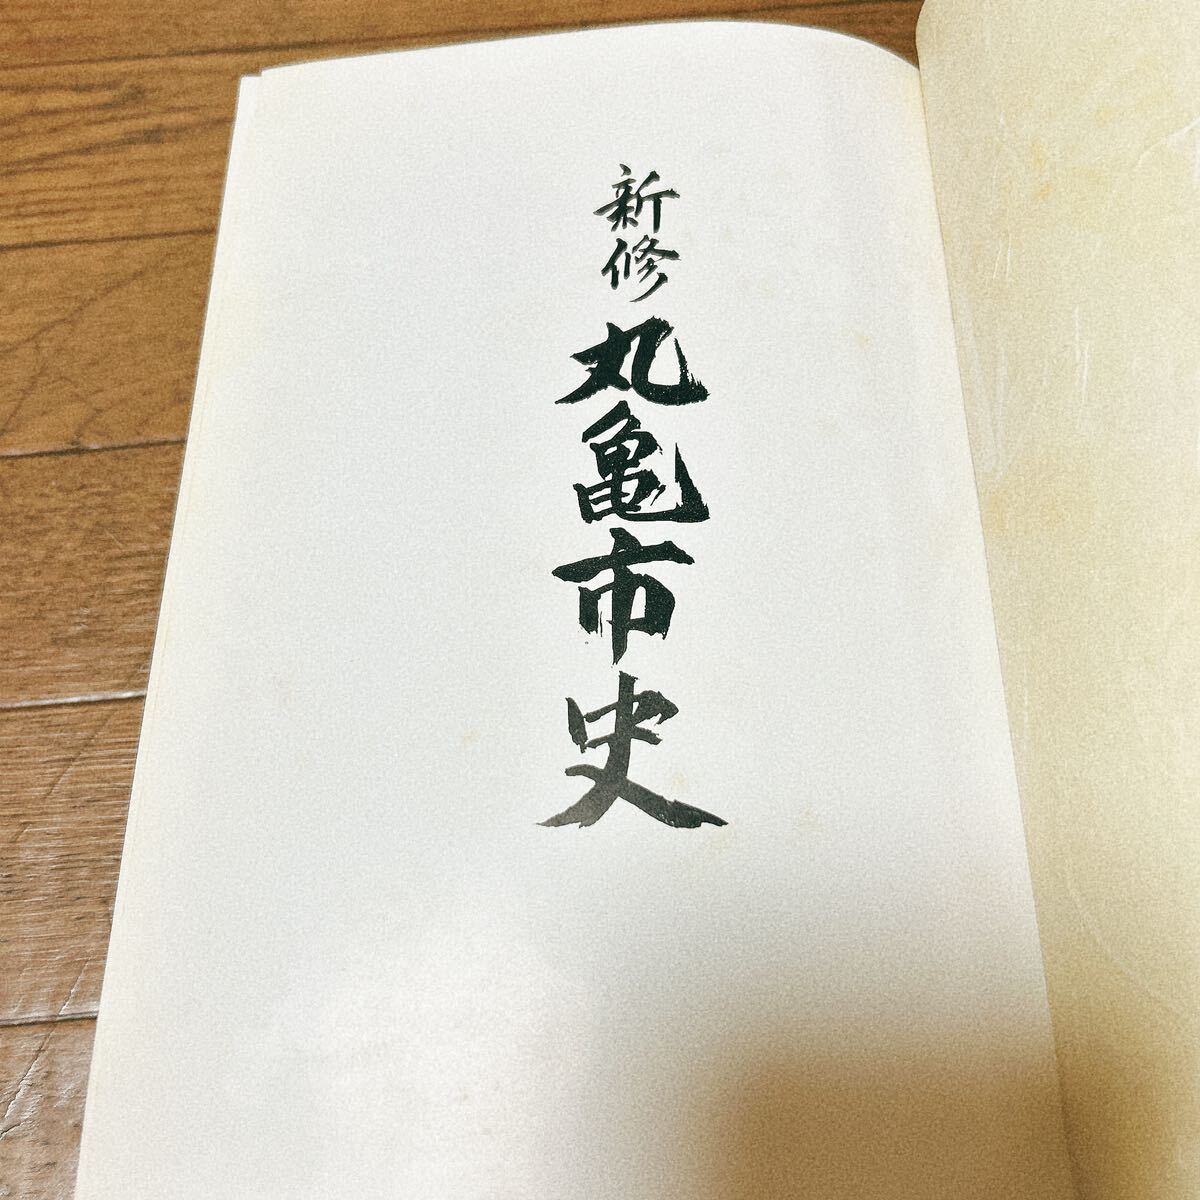 新修 丸亀市史